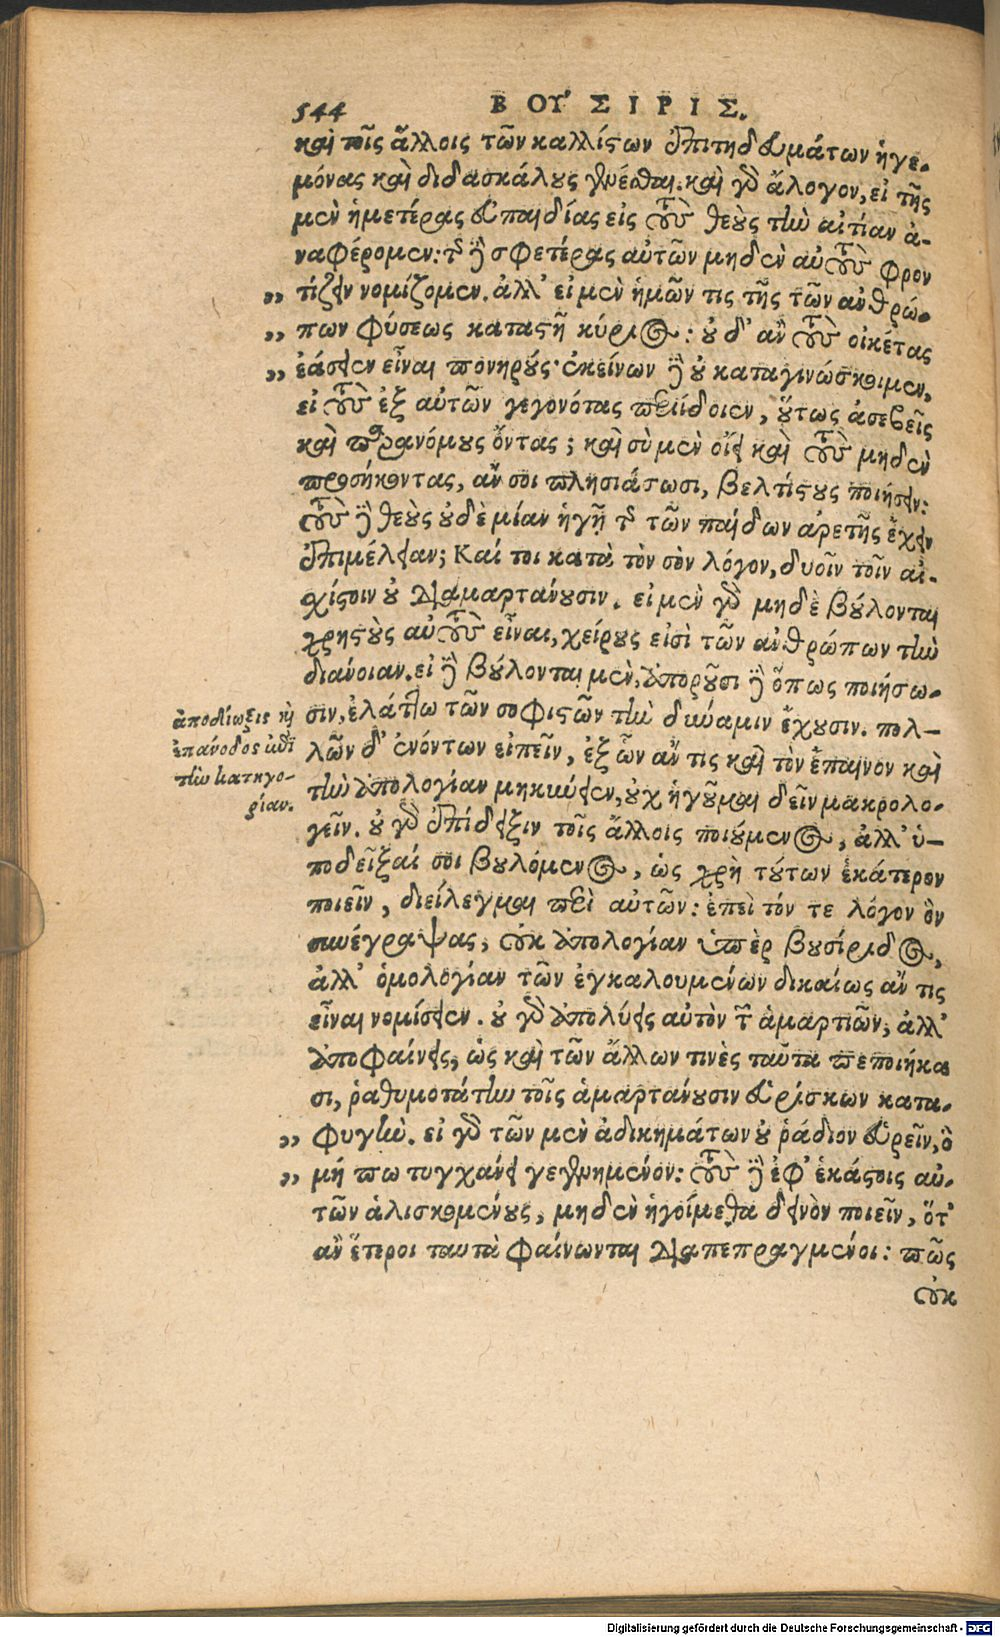 544
ΒΟΥ΄ΣΙΡΙΣ.
καὶ τοῖς ἄλλοις τῶν καλλίστων ἐπιτηδευμάτων ἡγε-
μόνας καὶ διδασκάλους γενέσθαι. καὶ γὰρ ἄλογον, εἰ τῆς
μὲν ἡμετέρας εὐπαιδίας εἰς τοὺς θεοὺς τὴν αἰτίαν ἀ-
ναφέρομεν: τῆς δὲ σφετέρας αὐτῶν μηδὲν αὐτοὺς φρον
„ τίζειν νομίζομεν. ἀλλ' εἰ μὲν ἡμῶν τις τῆς τῶν ἀνθρώ-
„ πων φύσεως καταστῇ κύριος: οὐδ' ἂν τοὺς οἰκέτας
„ ἐάσειεν εἶναι πονηρούς· ἐκείνων δὲ οὐ καταγινώσκοιμεν,
εἰ τοὺς ἐξ αὐτῶν γεγονότας περιίδοιεν, οὕτως ἀσεβεῖς
καὶ παρανόμους ὄντας; καὶ σὺ μὲν οἴει καὶ τοὺς μηδὲν
προσήκοντας, ἄν σοι πλησιάσωσι, βελτίστους ποιήσειν:
τοὺς δὲ θεοὺς οὐδὲ μίαν ἡγῇ τῆς τῶν παίδων ἀρετῆς ἔχειν
ἐπιμέλειαν; Καί τοι κατὰ τὸν σὸν λόγον, δυοῖν τοῖν αἰ-
σχίστοιν οὐ διαμαρτάνουσιν. εἰ μὲν γὰρ μηδὲ βούλονται
χρηστοὺς αὐτοὺς εἶναι, χείρους εἰσὶ τῶν ἀνθρώπων τὴν
διάνοιαν. εἰ δὲ βούλονται μὲν, ἀποροῦσι δὲ ὅπως ποιήσω-
σιν, ἐλάττω τῶν σοφιστῶν τὴν δύναμιν ἔχουσιν. πολ-
λῶν δ' ἐνόντων εἰπεῖν, ἐξ ὧν ἄν τις καὶ τὸν ἔπαινον καὶ
τὴν ἀπολογίαν μηκύνειεν, οὐχ ἡγοῦμαι δεῖν μακρολο-
γεῖν. οὐ γὰρ ἐπίδειξιν τοῖς ἄλλοις ποιούμενος, ἀλλ' ὑ-
ποδεῖξαί σοι βουλόμενος, ὡς χρὴ τούτων ἑκάτερον
ποιεῖν, διείλεγμαι περὶ αὐτῶν: ἐπεὶ τόν τε λόγον ὃν
συνέγραψας, οὐκ ἀπολογίαν ὑπὲρ βουσίριδος,
ἀλλ' ὁμολογίαν τῶν ἐγκαλουμένων δικαίως ἄν τις
εἶναι νομίσειεν. οὐ γὰρ ἀπολύεις αὐτὸν τῶν ἁμαρτιῶν, ἀλλ'
ἀποφαίνεις, ὡς καὶ τῶν ἄλλων τινὲς ταῦτα πεποιήκα
σι, ῥαθυμοτάτην τοῖς ἁμαρτάνουσιν εὑρίσκων κατα-
„ φυγήν. εἰ γὰρ τῶν μὲν ἀδικημάτων οὐ ῥάδιον εὑρεῖν, ὃ
„ μή πω τυγχάνει γεγενημένον: τοὺς δὲ ἐφ' ἑκάστοις αὐ-
τῶν ἁλισκομένους, μηδὲν ἡγοίμεθα δεινὸν ποιεῖν, ὅτ'
ἂν ἕτεροι ταυτὰ φαίνωνται διαπεπραγμένοι: πῶς
οὐκ
ἀποδίωξις καὶ
ἐπάνοδος ἐπὶ
τὴν κατηγο-
ρίαν.
Digitalisierung gefördert durch die Deutsche Forschungsgemeinschaft - DFG